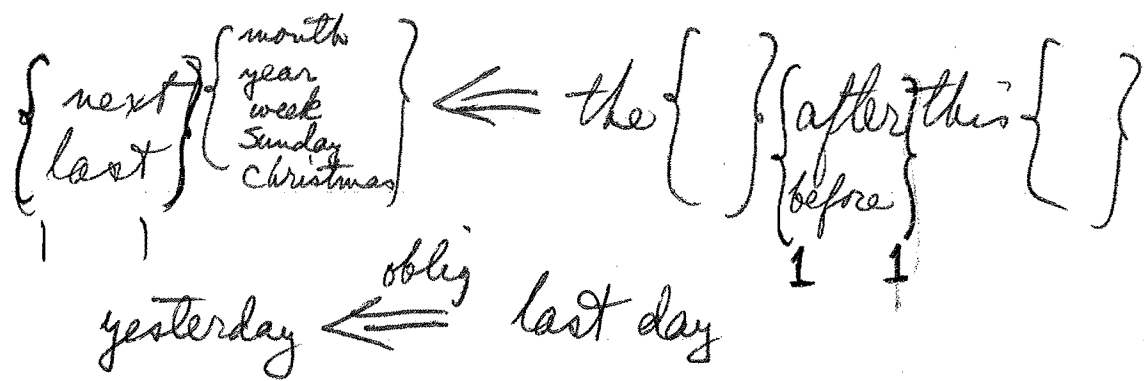 { next last } { month year week Sunday Christmas } ⇐ the { } { after before } this { }
1 1 1 1
oblig
yesterday ⇐ last day